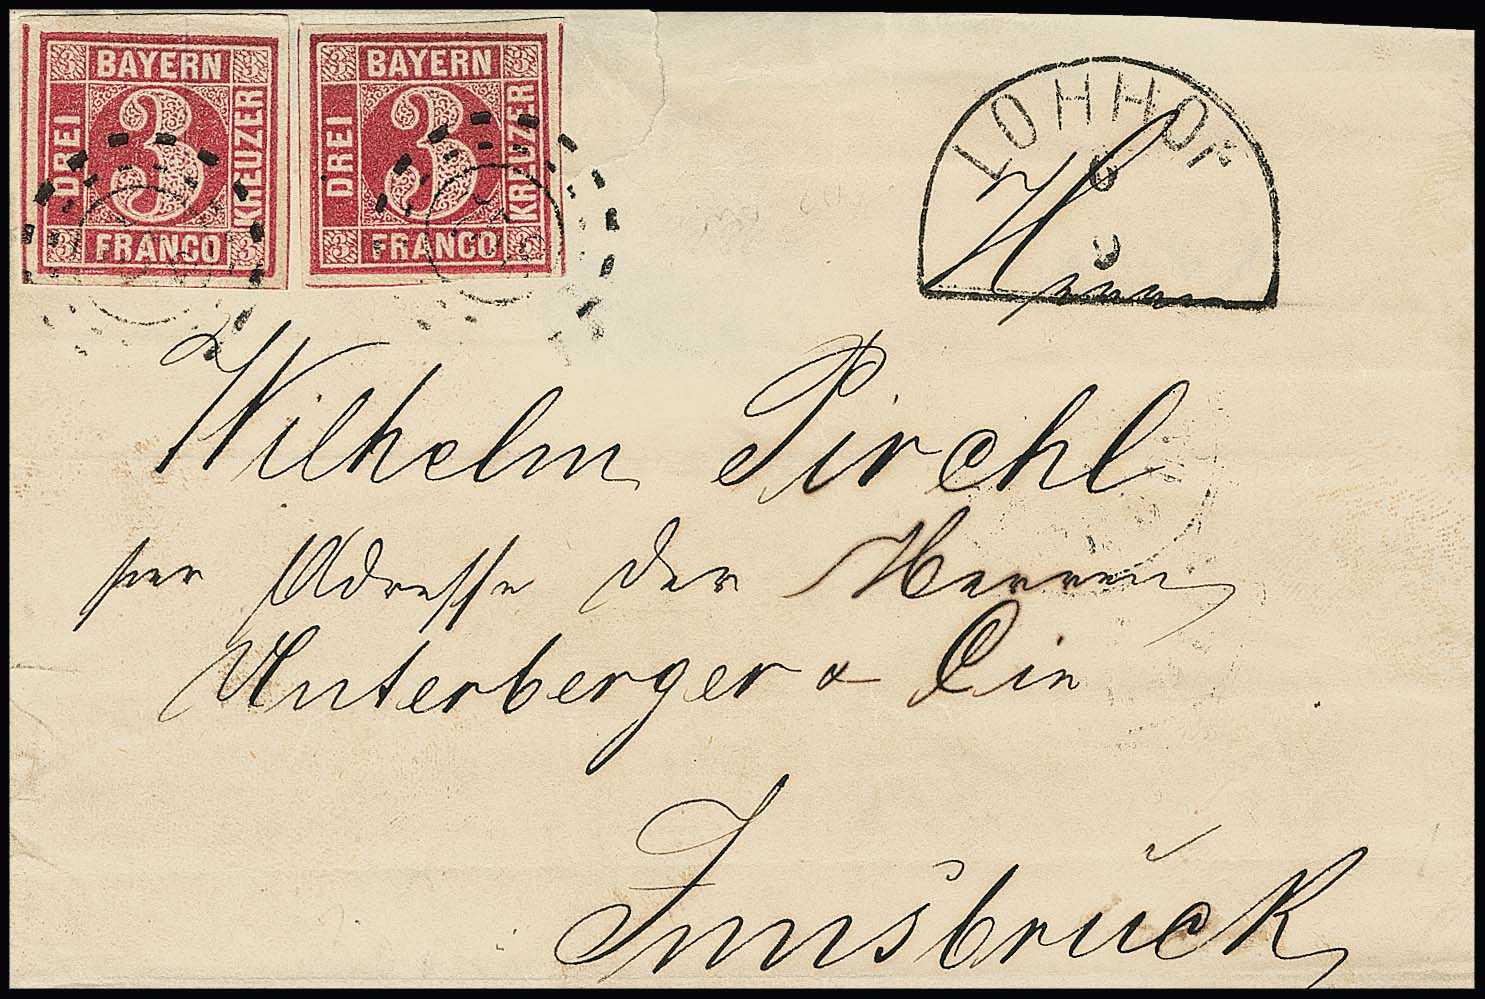 3 BAYERN 3
DREI 3 KREUZER
3 FRANCO 3
3 BAYERN 3
DREI 3 KREUZER
3 FRANCO 3
LOHHOF
6
9
Herrn
Wilhelm Pirchl
per Adresse der Herren
Unterberger &
Innsbrŭck